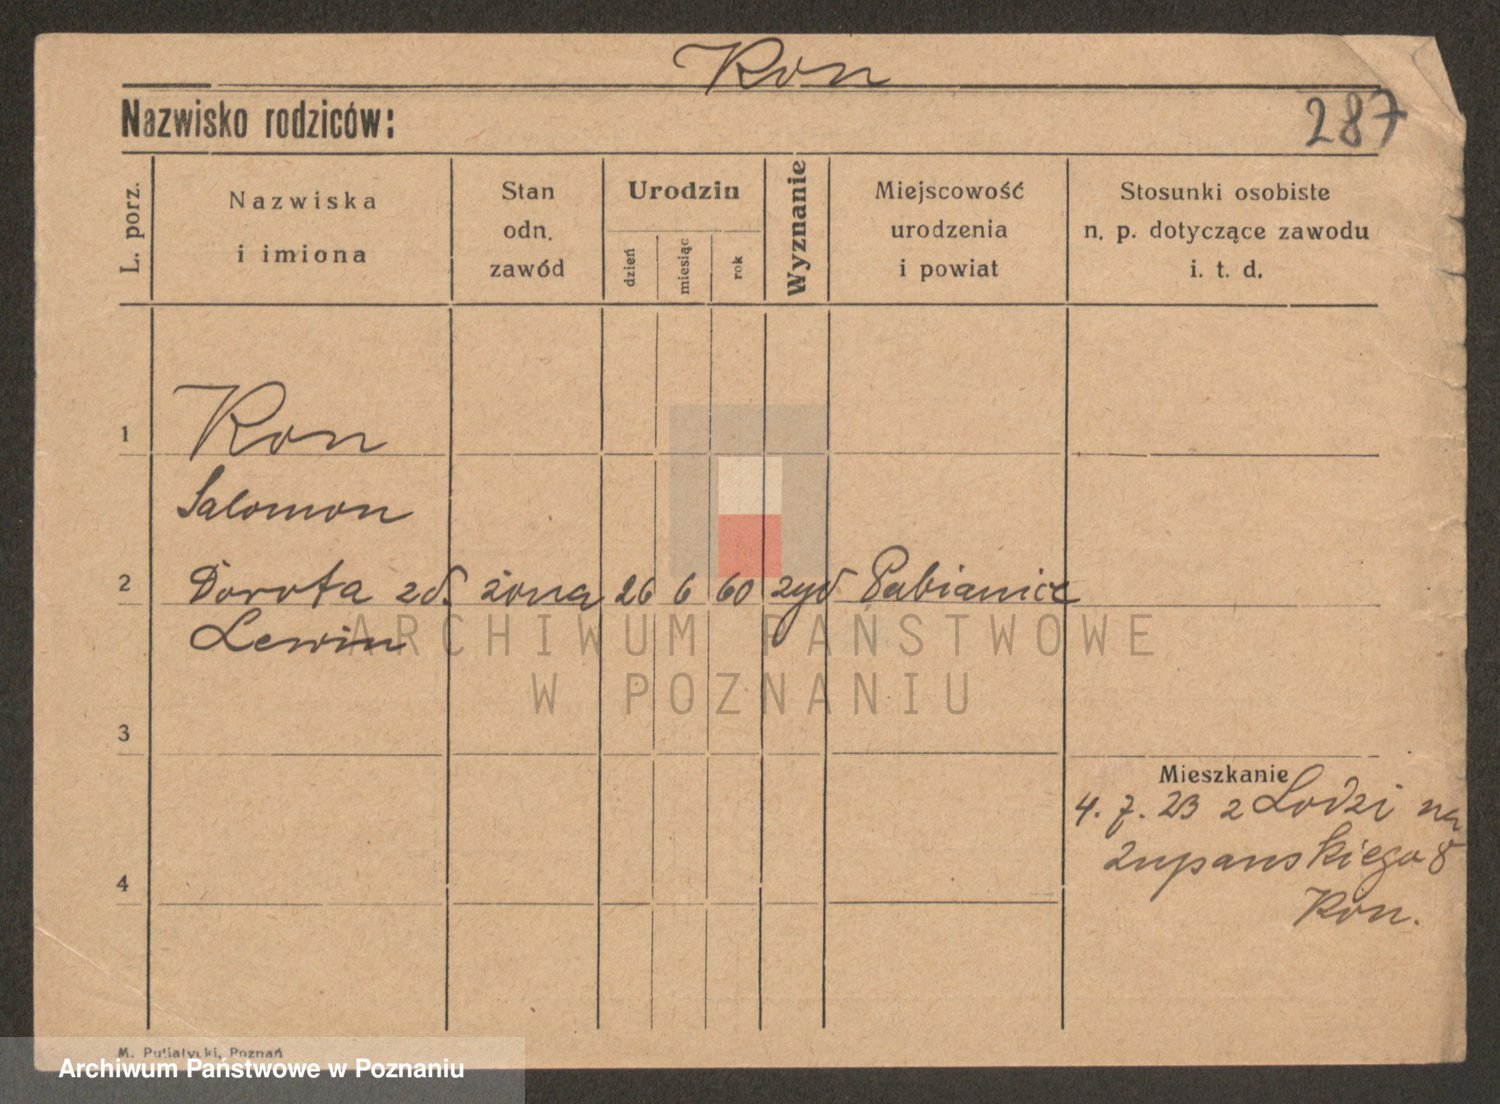 Kon
Nazwisko rodziców:
287
L. porz.
Nazwiska
i imiona
Stan
odn.
zawód
Urodzin
dzień
miesiąc
rok
Wyznanie
Miejscowość
urodzenia
i powiat
Stosunki osobiste
n. p. dotyczące zawodu
i. t. d.
1
Kon
Salomon
2
Dorota zd. żona 26 6 60 żyd Pabianice
Lewin
ARCHIWUM PAŃSTWOWE
W POZNANIU
3
Mieszkanie
4. 7. 23 z Lodzi na
Żupanskiego 8
Kon.
4
M. Putiatycki, Poznań
Archiwum Państwowe w Poznaniu